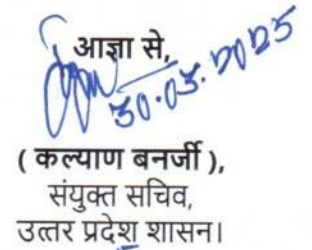 आज्ञा से,
30.05.2025
( कल्याण बनर्जी ),
संयुक्त सचिव,
उत्तर प्रदेश शासन।